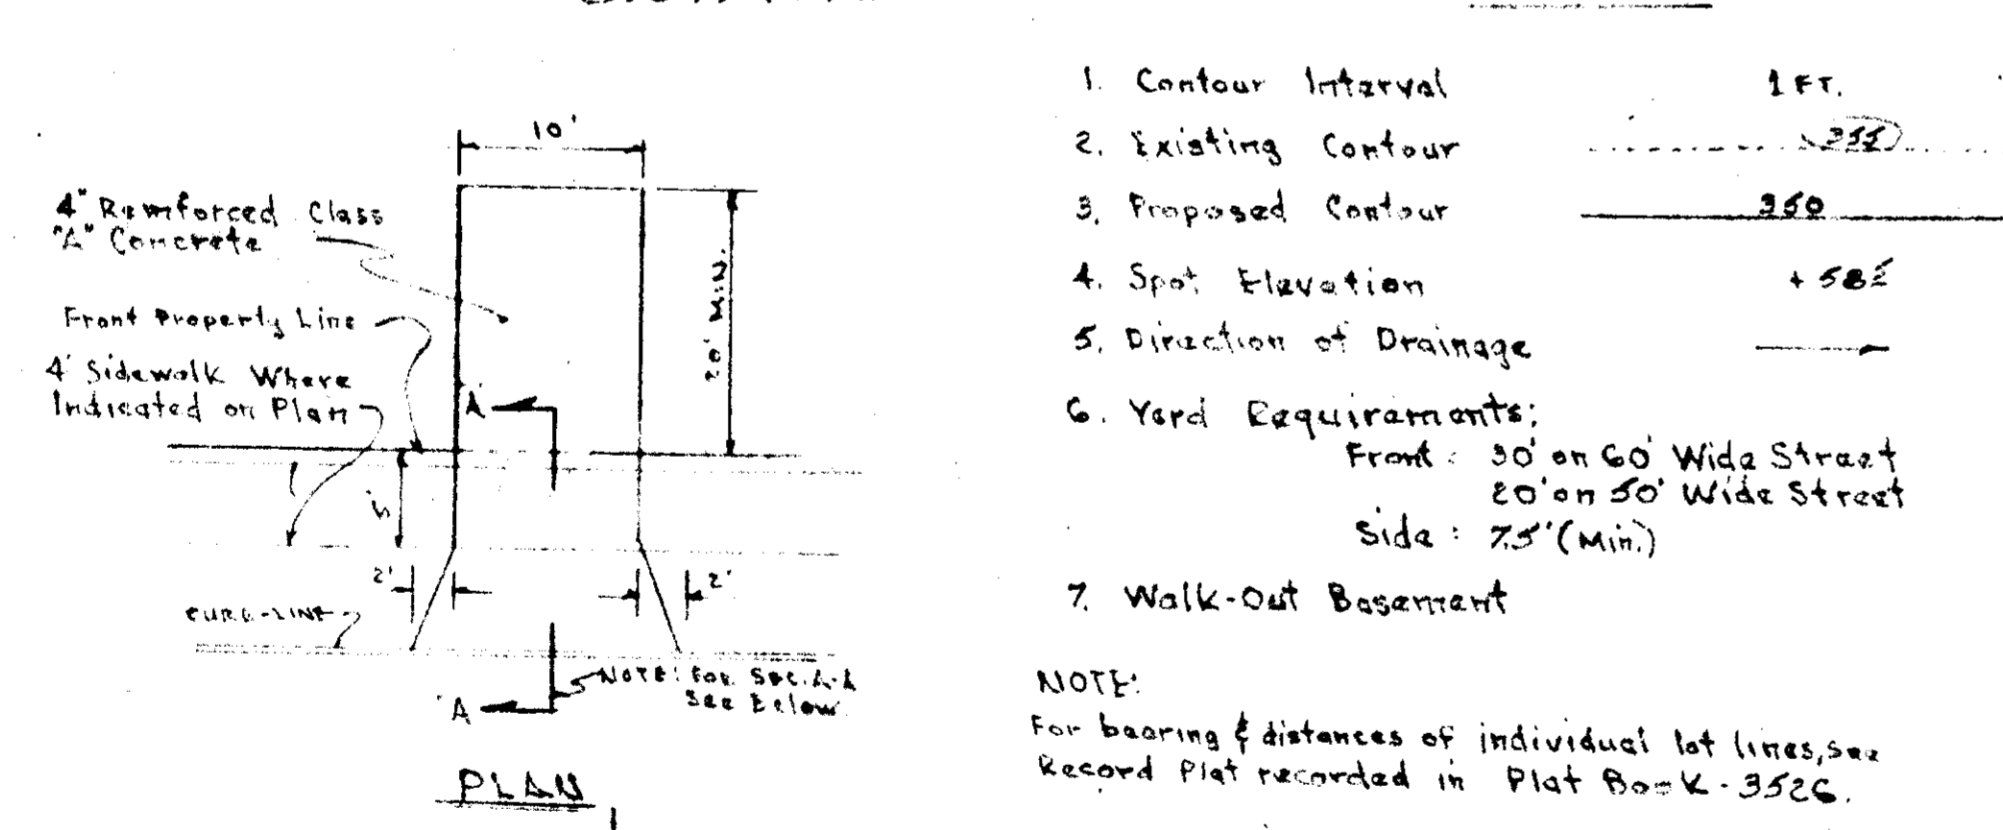 10'
4" Reinforced Class
"A" Concrete
20' Min.
Front Property Line
4' Sidewalk Where
Indicated on Plan
A
5'
2'
2'
CURB-LINE
NOTE: For Sec. A-A
See Below
A
PLAN
1. Contour Interval 1 FT.
2. Existing Contour
3. Proposed Contour 350
4. Spot Elevation
5. Direction of Drainage
6. Yard Requirements:
Front: 30' on 60' Wide Street
20' on 50' Wide Street
Side: 7.5' (Min.)
7. Walk-Out Basement
NOTE:
For bearing & distances of individual lot lines, see
Record Plat recorded in Plat Book - 3526.